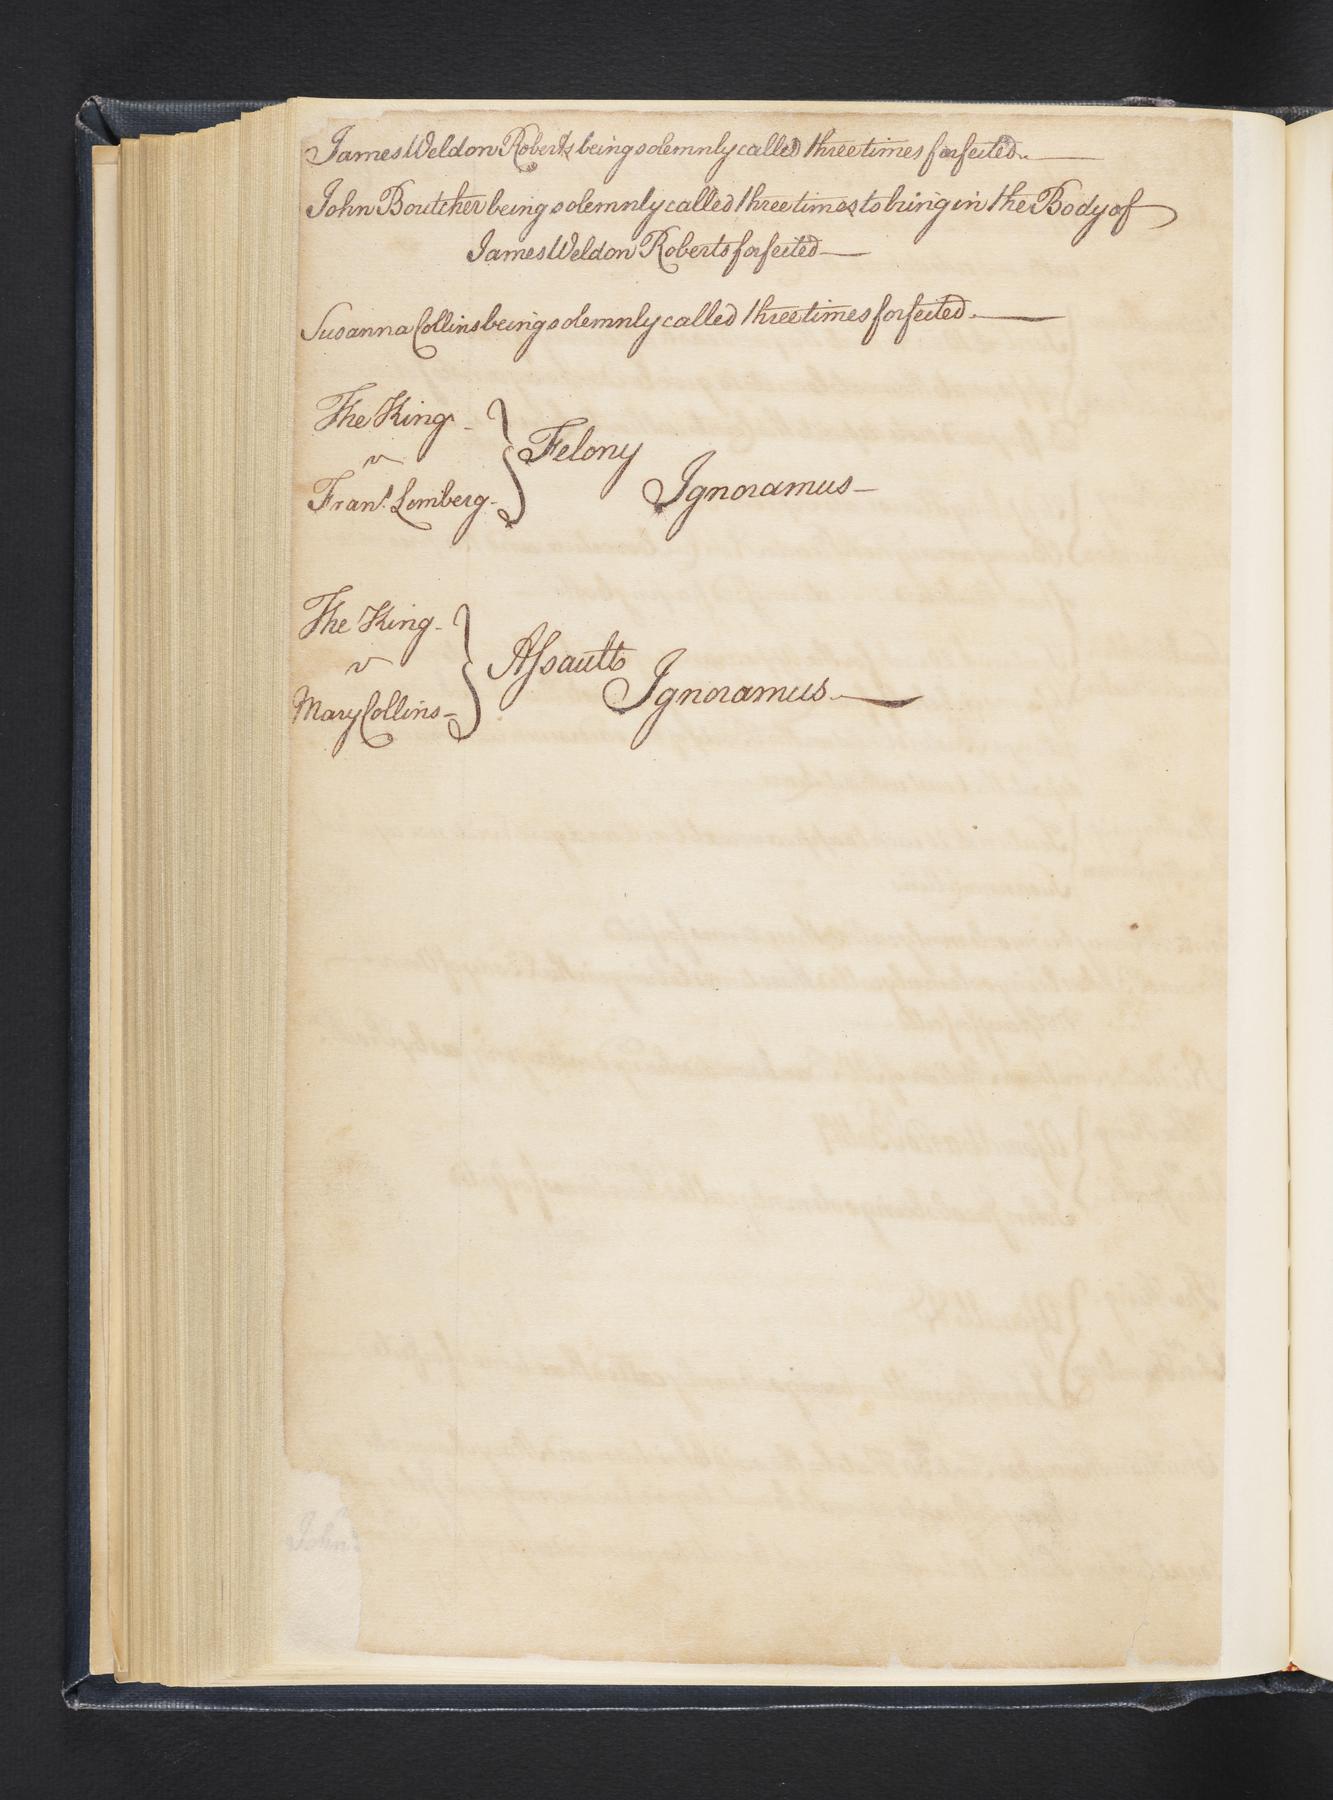 James Weldon Roberts being solemnly called three times forfeited.
John Boutcher being solemnly called three times to bring in the Body of
James Weldon Roberts forfeited
Susanna Collins being solemnly called three times forfeited.
The King
v
Frans. Lemberg
Felony
Ignoramus
The King
v
Mary Collins
Assault
Ignoramus